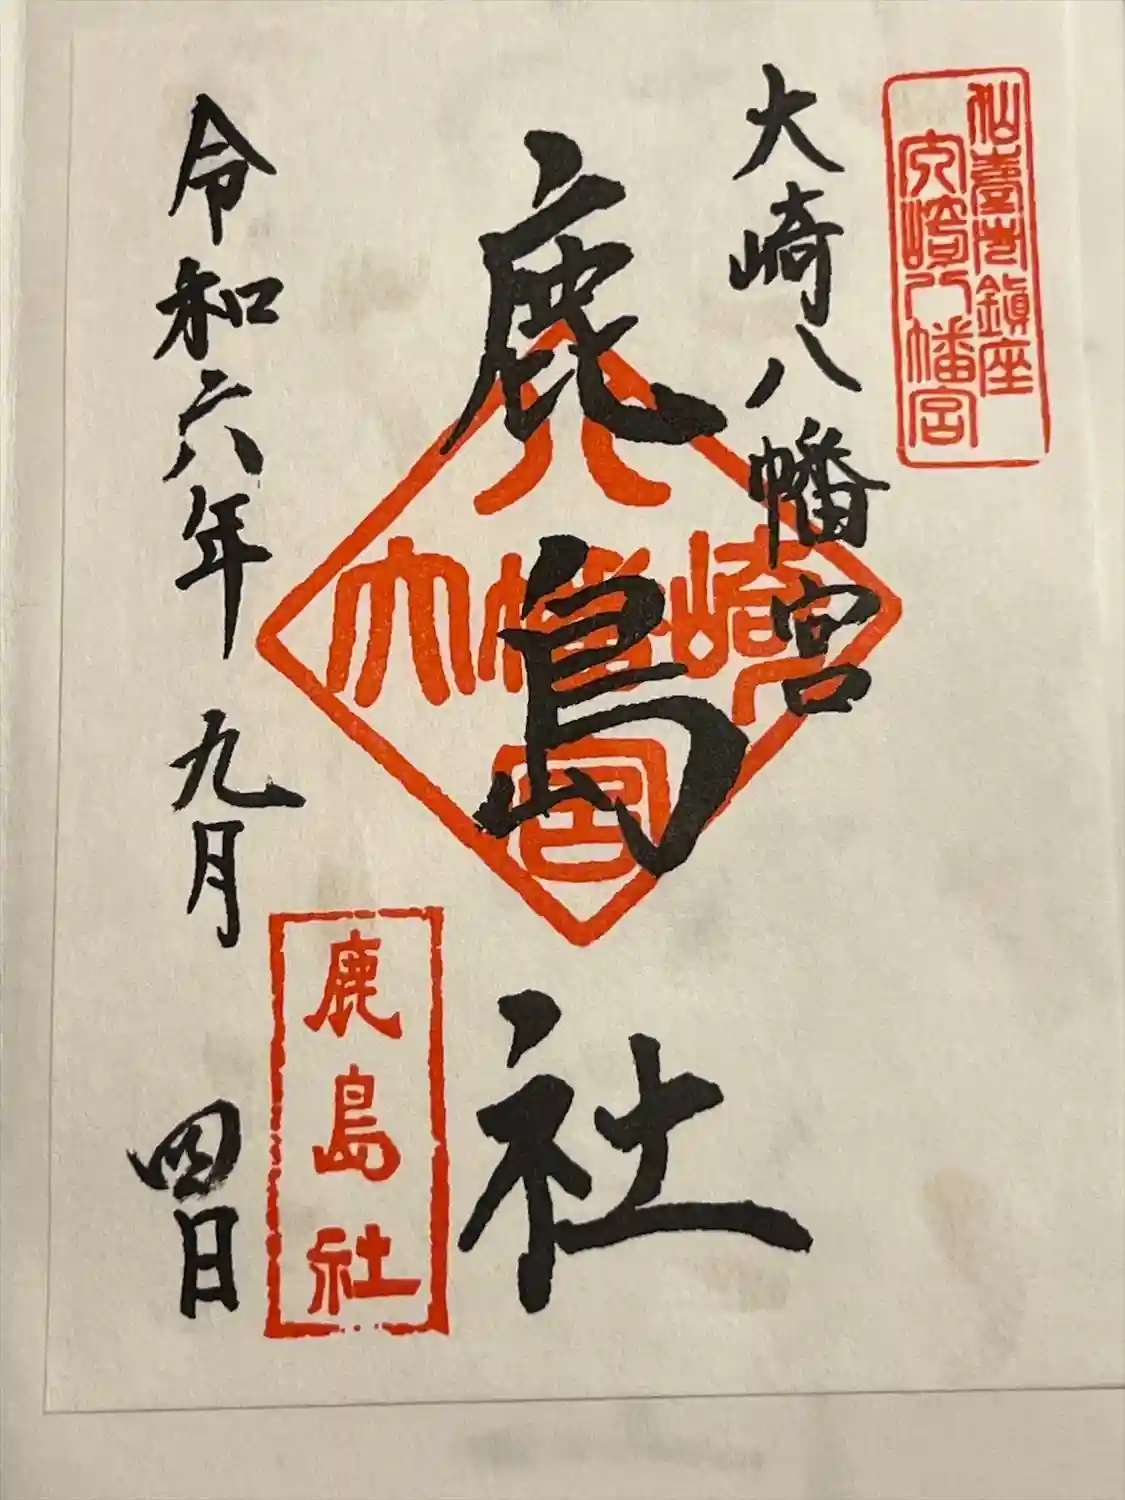 仙臺市鎮座
大崎八幡宮
大崎八幡宮
鹿島社
八
大幡崎
宮
鹿島社
令和六年 九月 四日